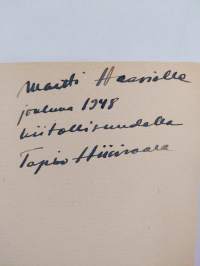 Martti Haaviolle
jouluna 1948
kiitollisuudella
Tapio Hiisivaara